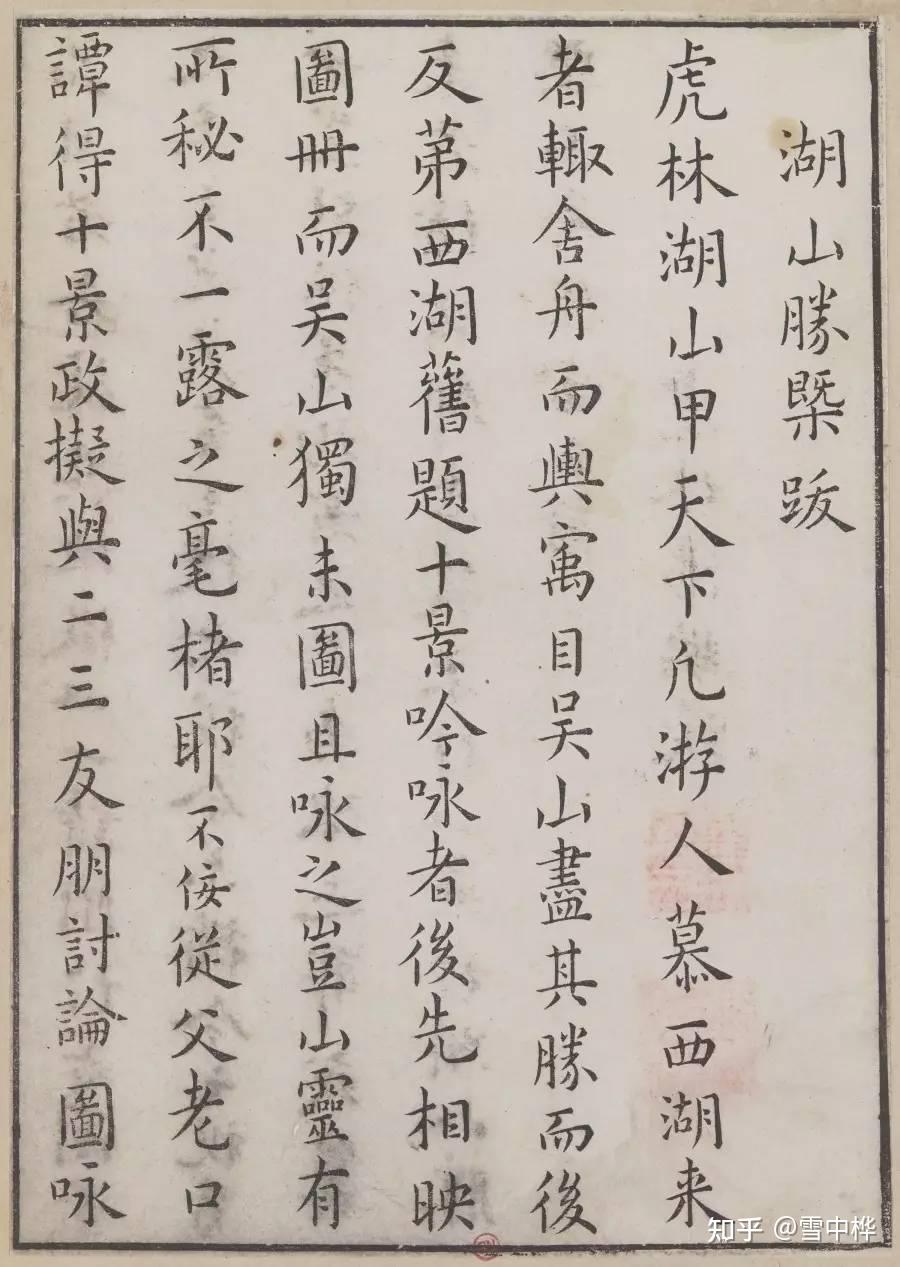 湖山勝槩跋
虎林湖山甲天下凢游人慕西湖来
者輙舍舟而輿寓目吴山盡其勝而後
反苐西湖舊題十景吟咏者後先相映
圖冊而吴山獨未圖且咏之豈山靈有
所秘不一露之毫楮耶不佞從父老口
譚得十景政擬與二三友朋討論圖咏
知乎 @雪中桦